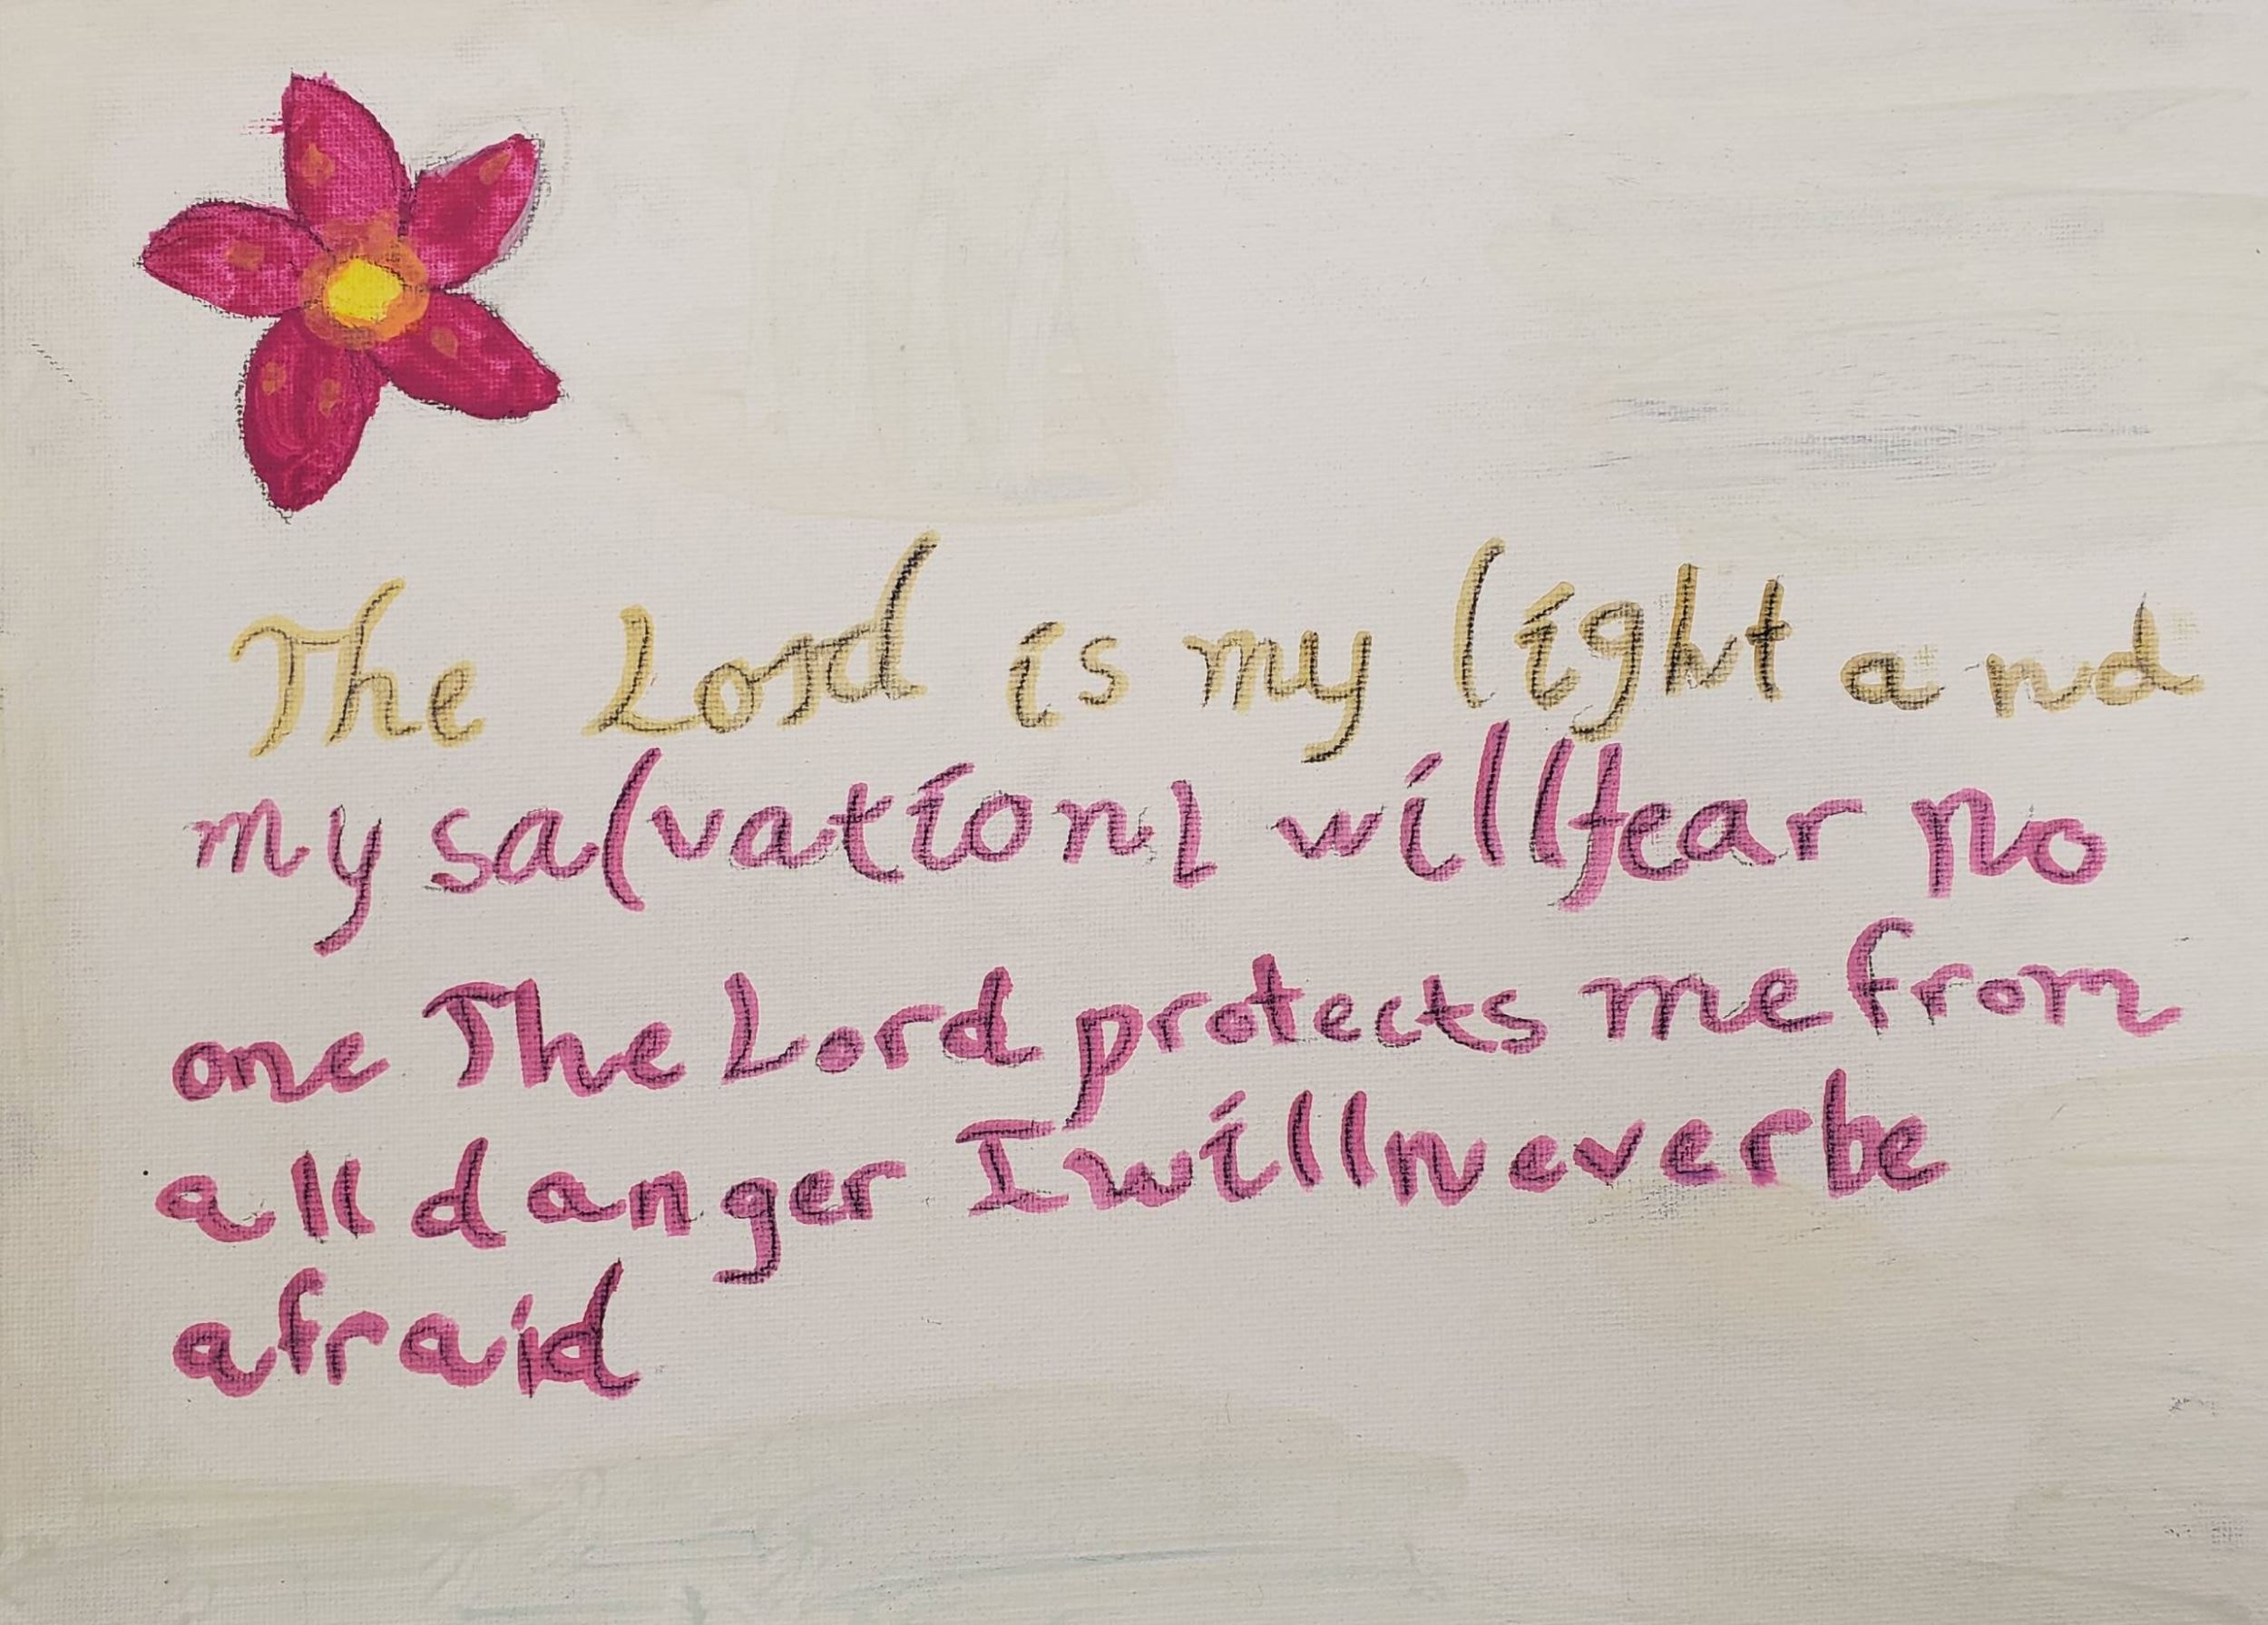 The Lord is my light and
my salvation I will fear no
one The Lord protects me from
all danger I will never be
afraid